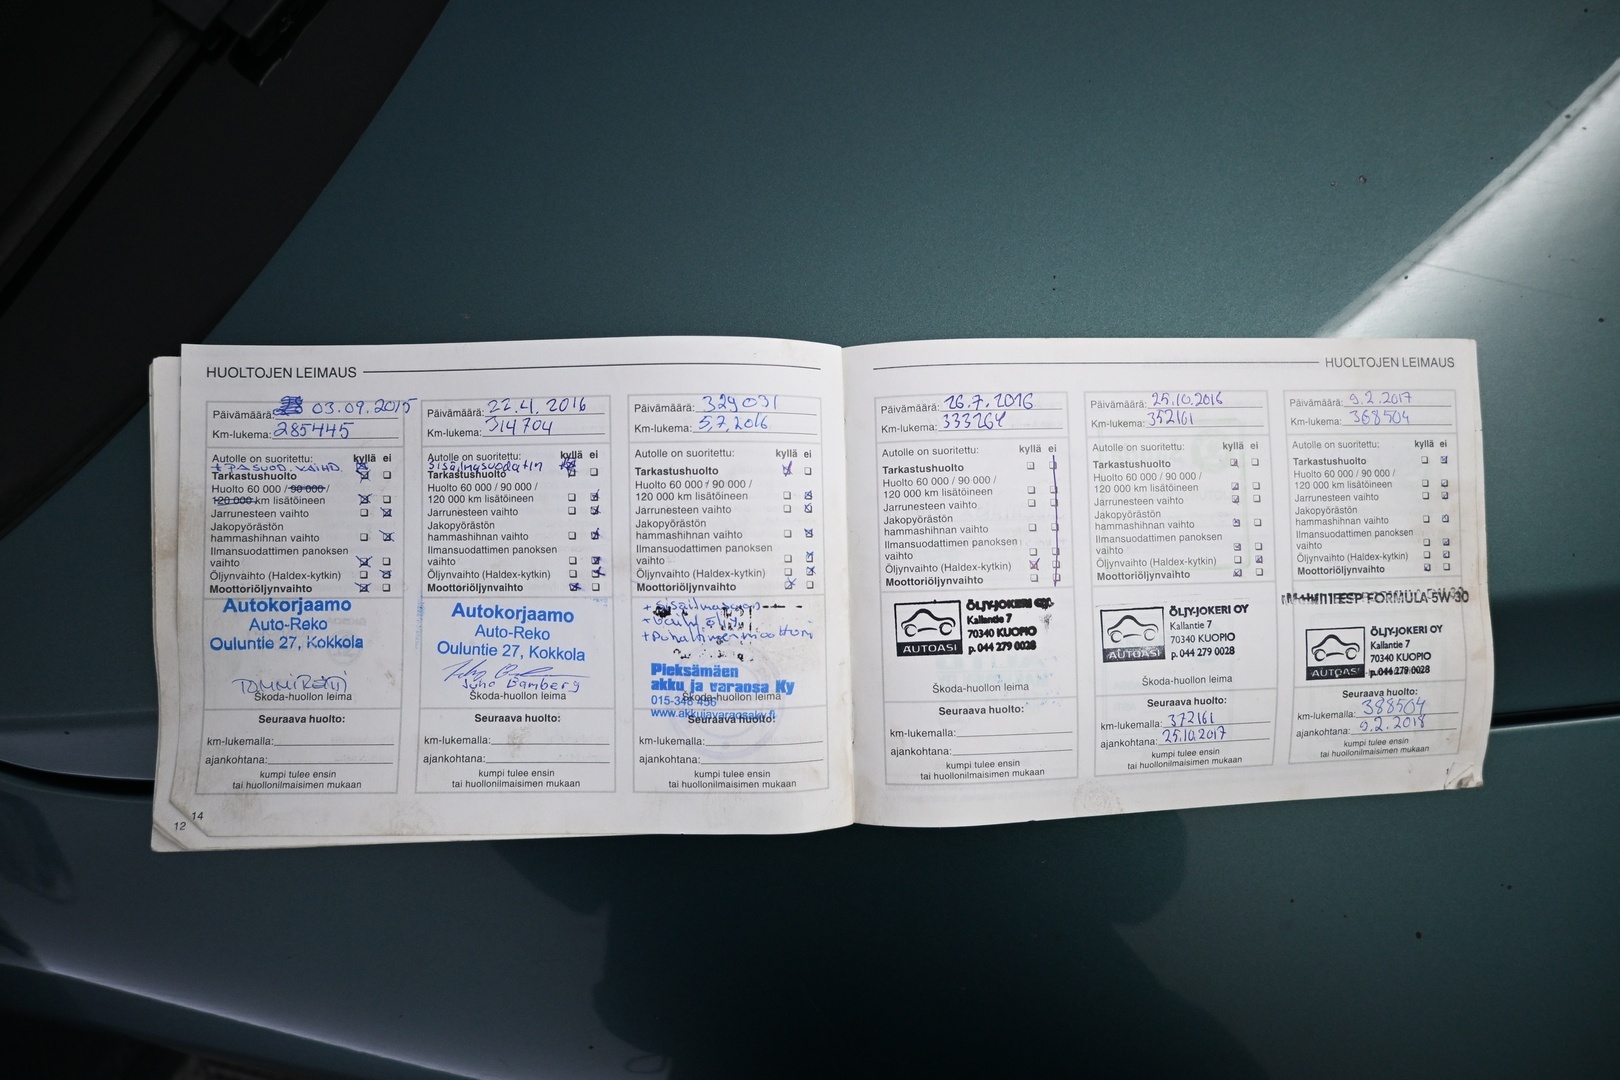 HUOLTOJEN LEIMAUS
Päivämäärä: 03.09.2015
Km-lukema: 285445
Autolle on suoritettu: kyllä ei
Tarkastushuolto
Huolto 60 000 / 90 000 /
120 000 km lisätöineen
Jarrunesteen vaihto
Jakopyörästön
hammashihnan vaihto
Ilmansuodattimen panoksen
vaihto
Öljynvaihto (Haldex-kytkin)
Moottoriöljynvaihto
Autokorjaamo
Auto-Reko
Ouluntie 27, Kokkola
Škoda-huollon leima
Seuraava huolto:
km-lukemalla:
ajankohtana:
kumpi tulee ensin
tai huollonilmaisimen mukaan
14
12
Päivämäärä: 22.4.2016
Km-lukema: 314704
Autolle on suoritettu: kyllä ei
Sisäilmasuodatin
Tarkastushuolto
Huolto 60 000 / 90 000 /
120 000 km lisätöineen
Jarrunesteen vaihto
Jakopyörästön
hammashihnan vaihto
Ilmansuodattimen panoksen
vaihto
Öljynvaihto (Haldex-kytkin)
Moottoriöljynvaihto
Autokorjaamo
Auto-Reko
Ouluntie 27, Kokkola
Škoda-huollon leima
Seuraava huolto:
km-lukemalla:
ajankohtana:
kumpi tulee ensin
tai huollonilmaisimen mukaan
Päivämäärä: 329031
Km-lukema: 5.7.2016
Autolle on suoritettu: kyllä ei
Tarkastushuolto
Huolto 60 000 / 90 000 /
120 000 km lisätöineen
Jarrunesteen vaihto
Jakopyörästön
hammashihnan vaihto
Ilmansuodattimen panoksen
vaihto
Öljynvaihto (Haldex-kytkin)
Moottoriöljynvaihto
Pieksämäen
akku ja varaosa Ky
Škoda-huollon leima
015-348 456
www.akkujavaraosaky.fi
Seuraava huolto:
km-lukemalla:
ajankohtana:
kumpi tulee ensin
tai huollonilmaisimen mukaan
HUOLTOJEN LEIMAUS
Päivämäärä: 26.7.2016
Km-lukema: 333264
Autolle on suoritettu: kyllä ei
Tarkastushuolto
Huolto 60 000 / 90 000 /
120 000 km lisätöineen
Jarrunesteen vaihto
Jakopyörästön
hammashihnan vaihto
Ilmansuodattimen panoksen
vaihto
Öljynvaihto (Haldex-kytkin)
Moottoriöljynvaihto
AUTOASI
ÖLJY-JOKERI OY
Kallantie 7
70340 KUOPIO
p. 044 279 0028
Škoda-huollon leima
Seuraava huolto:
km-lukemalla:
ajankohtana:
kumpi tulee ensin
tai huollonilmaisimen mukaan
Päivämäärä: 25.10.2016
Km-lukema: 352161
Autolle on suoritettu: kyllä ei
Tarkastushuolto
Huolto 60 000 / 90 000 /
120 000 km lisätöineen
Jarrunesteen vaihto
Jakopyörästön
hammashihnan vaihto
Ilmansuodattimen panoksen
vaihto
Öljynvaihto (Haldex-kytkin)
Moottoriöljynvaihto
AUTOASI
ÖLJY-JOKERI OY
Kallantie 7
70340 KUOPIO
p. 044 279 0028
Škoda-huollon leima
Seuraava huolto:
km-lukemalla: 372161
ajankohtana: 25.10.2017
kumpi tulee ensin
tai huollonilmaisimen mukaan
Päivämäärä: 9.2.2017
Km-lukema: 368504
Autolle on suoritettu: kyllä ei
Tarkastushuolto
Huolto 60 000 / 90 000 /
120 000 km lisätöineen
Jarrunesteen vaihto
Jakopyörästön
hammashihnan vaihto
Ilmansuodattimen panoksen
vaihto
Öljynvaihto (Haldex-kytkin)
Moottoriöljynvaihto
ESP FORMULA 5W-30
AUTOASI
ÖLJY-JOKERI OY
Kallantie 7
70340 KUOPIO
p. 044 279 0028
Seuraava huolto:
km-lukemalla: 388504
ajankohtana: 9.2.2018
kumpi tulee ensin
tai huollonilmaisimen mukaan